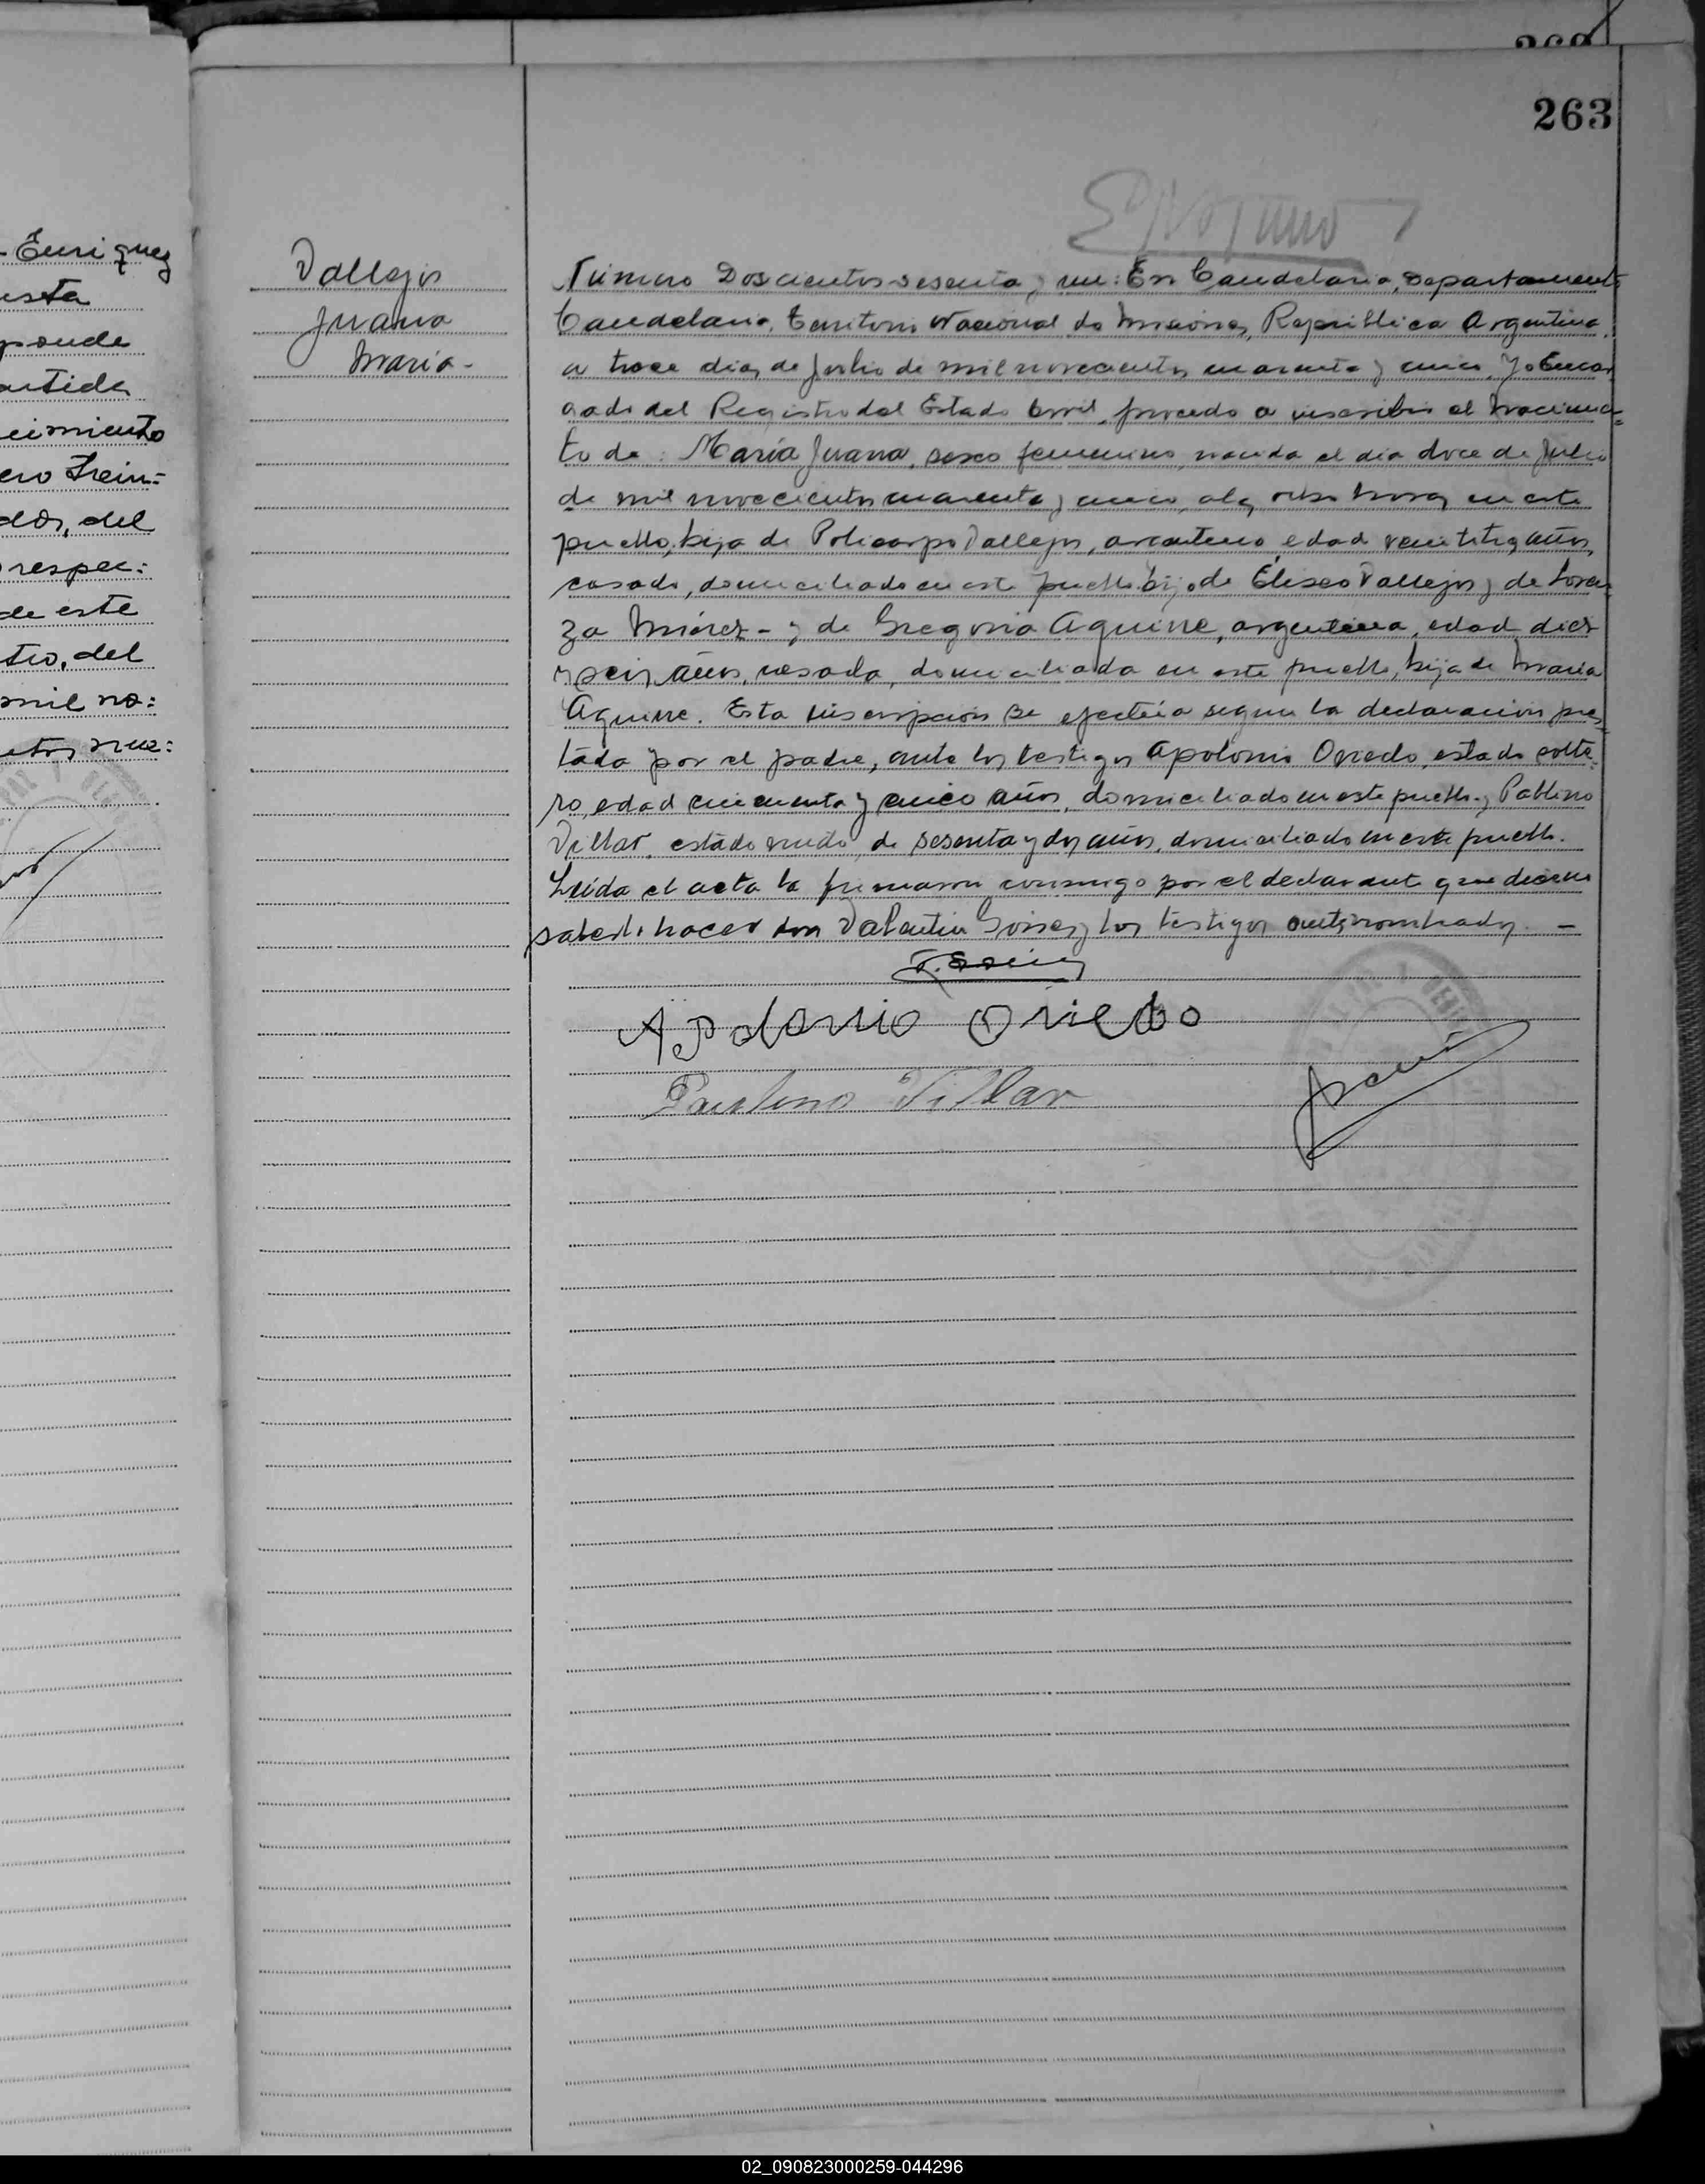 263
Enriquez
esta
ponde
artida
cimiento
ero Trein=
dos, del
respec:
de este
tro, del
mil no:
Vallejos
Juana
Maria.-
Número Doscientos sesenta y un: En Candelaria, Departamento
Candelaria, Territorio Nacional de Misiones, República Argentina,
a trece dias de Julio de mil novecientos cuarenta y cinco, Yo Encar
gado del Registro del Estado Civil, procedo a inscribir el nacimien=
to de: María Juana, sexo femenino, nacida el dia doce de Julio
de mil novecientos cuarenta y cinco, a las ocho horas en este
pueblo, hija de Policarpo Vallejos, argentino, edad años,
casado, domiciliado en este pueblo hijo de Eliseo Vallejos y de Loren
za - y de Gregoria Aguirre, argentina, edad diez
y seis años, casada, domiciliada en este pueblo, hija de Maria
Aguirre. Esta inscripción se efectúa segun la declaración pres
tada por el padre, ante los testigos Apolonio Oviedo, estado solte=
ro, edad cincuenta y cinco años, domiciliado en este pueblo y Pablino
Villar, estado viudo, de sesenta y dos años, domiciliado en este pueblo.
Leida el acta la firmaron conmigo por el declarante que dice no
saberlo hacer don Valentin y los testigos antes nombrados. -
Apolonio Oviedo
Paulino Villar
02_090823000259-044296